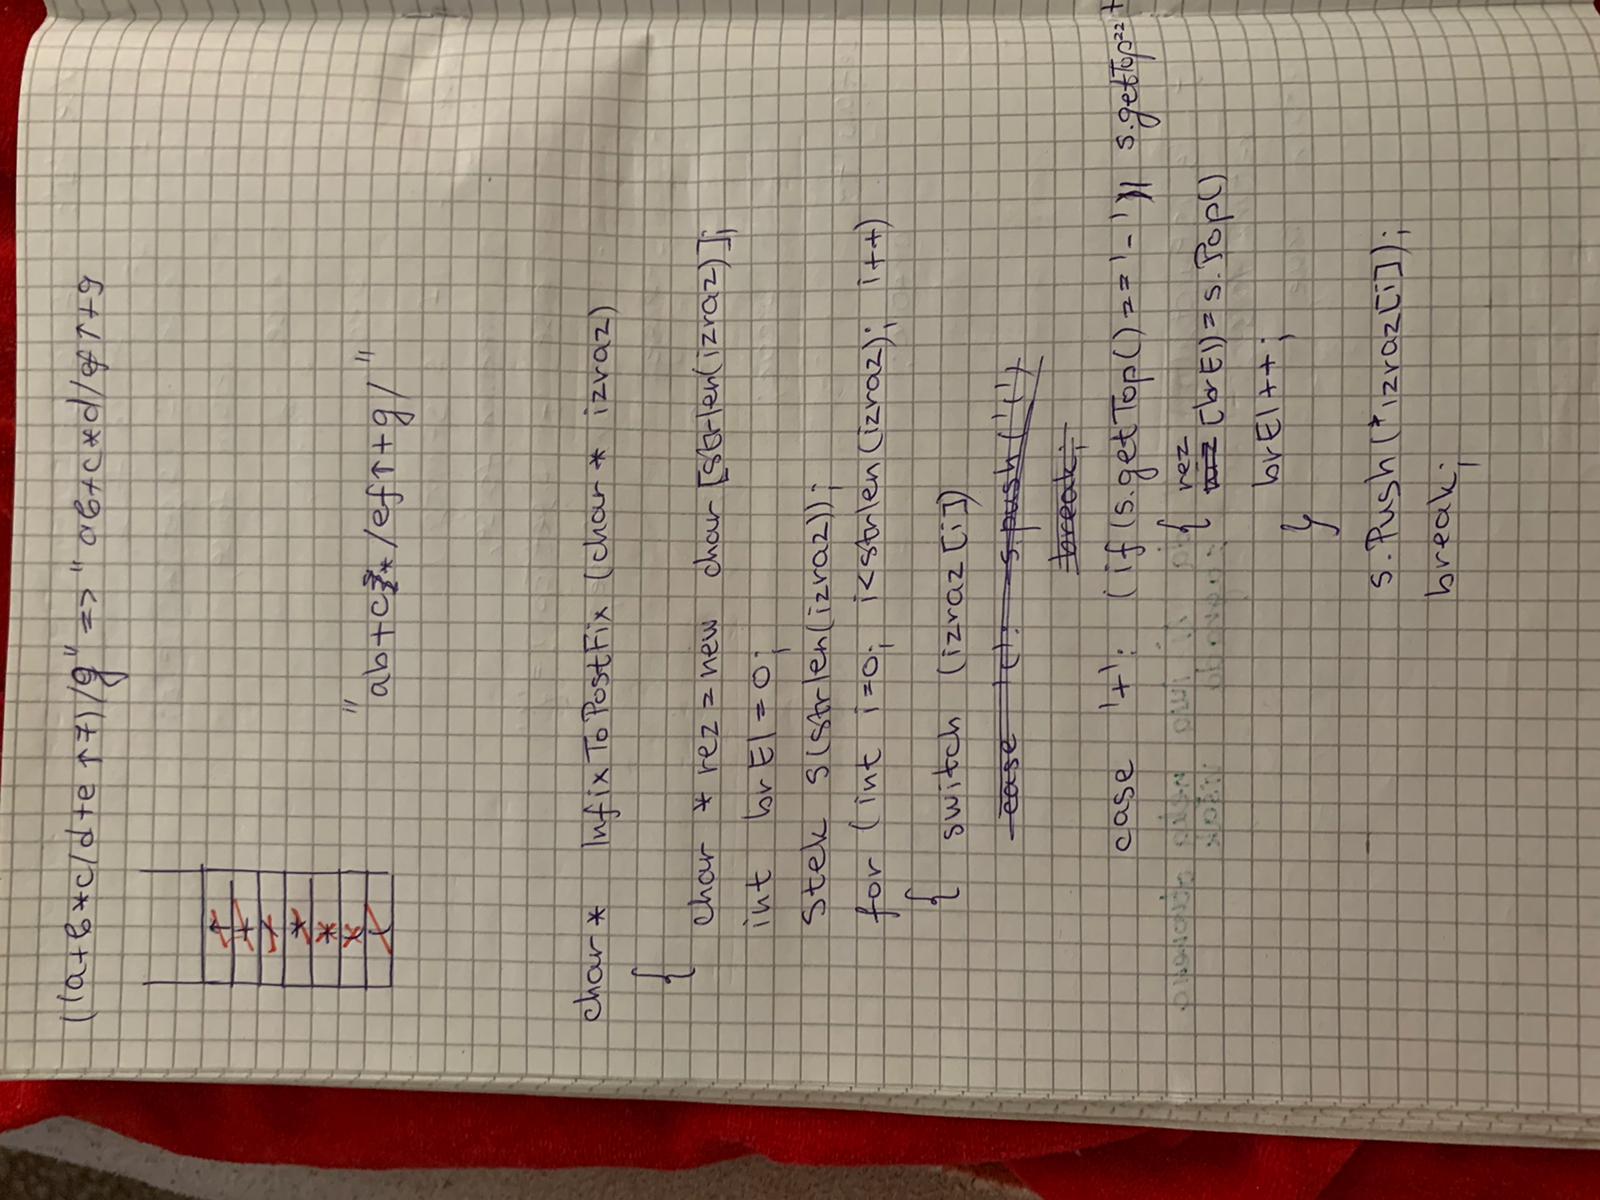 ((a+b*c/d+e↑7)/g" => "ab+c*d/ef↑+g
"ab+c*/ef↑+g/"
char* InfixToPostFix (char* izraz)
{
char * rez = new char [strlen(izraz)];
int brEl=0;
Stek s(strlen(izraz));
for (int i=0; i<strlen(izraz); i++)
{ switch (izraz[i])
case '(': s.push('(')
break;
case '+': (if (s.getTop() == '-') || s.getTop==+
{ rez
[brEl)=s.Pop()
brEl++;
}
s.Push(*izraz[i]);
break;